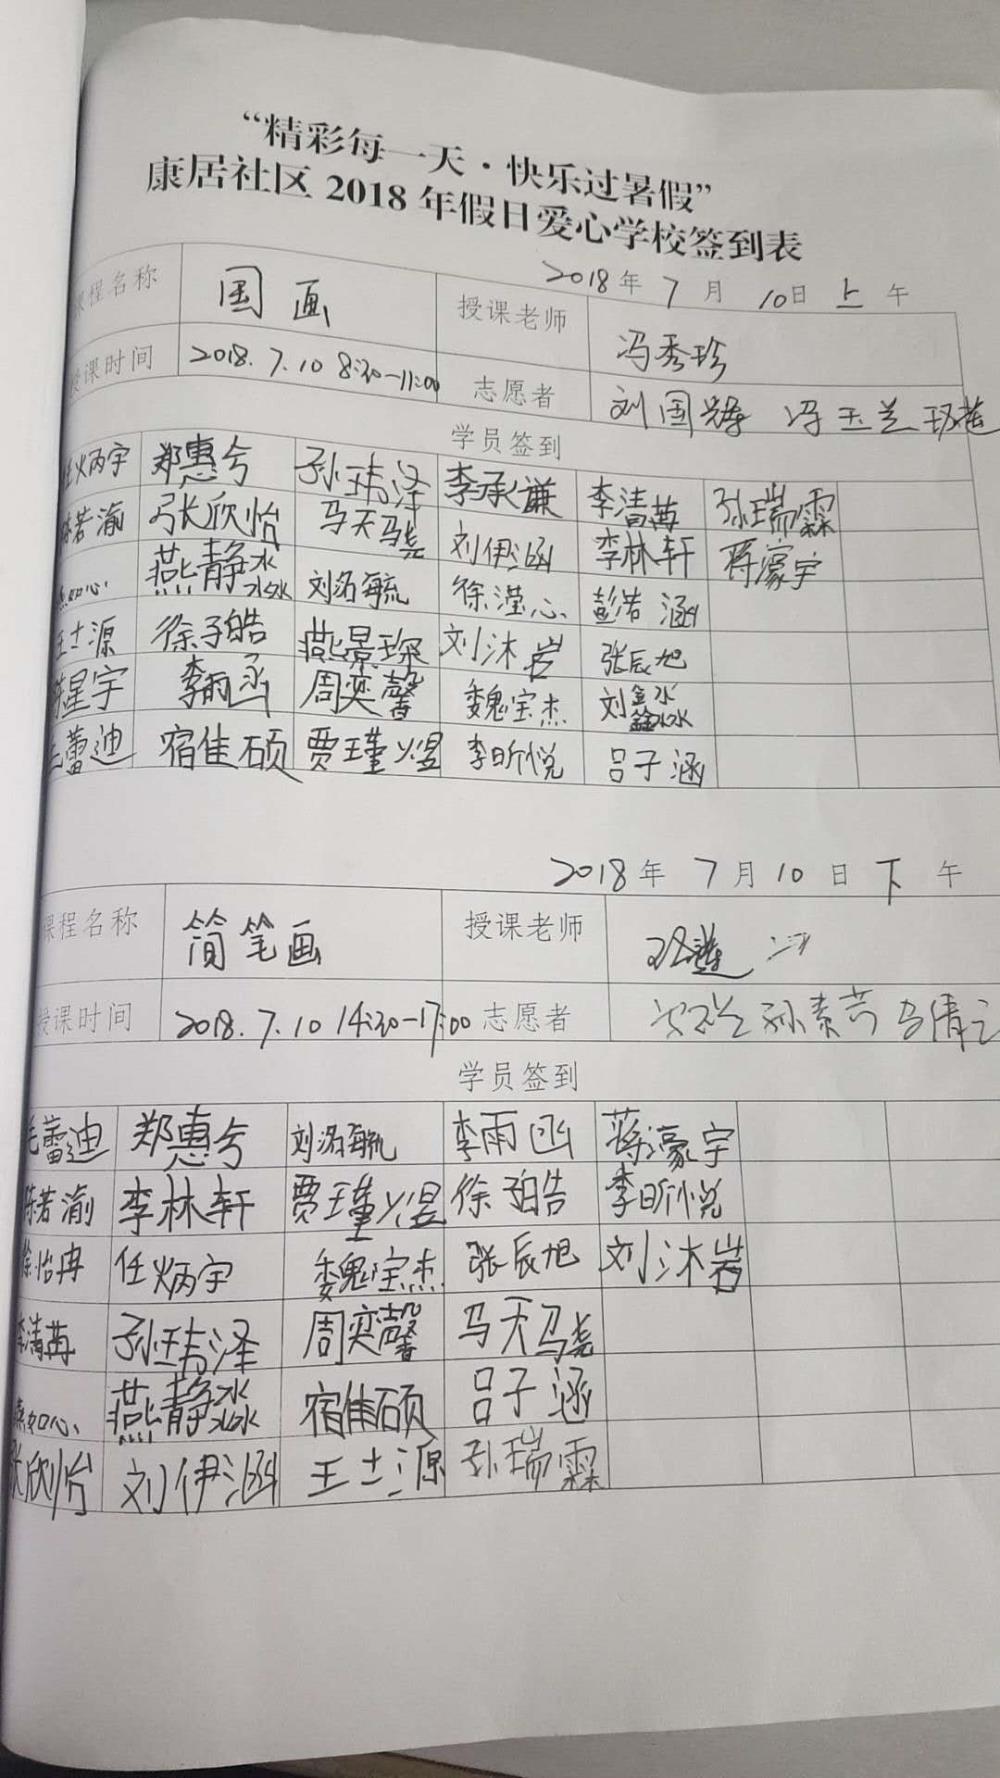 “精彩每一天·快乐过暑假”
康居社区 2018 年假日爱心学校签到表
2018 年 7 月 10 日 上 午
课程名称 国画 授课老师 冯秀珍
授课时间 2018.7.10 8:30-11:00 志愿者 刘国辉 冯玉兰
学员签到
任炳宇 郑惠兮 孙玮泽 李承谦 李清苒 孙瑞霖
陈若渝 张欣怡 马天骁 刘伊涵 李林轩 蒋濠宇
燕如心 燕静淼 刘洺毓 徐滢心 彭若涵
王士源 徐子皓 燕景琛 刘沐岩 张辰旭
星宇 李雨函 周奕馨 魏宝杰 刘鑫淼
毛蕾迪 宿佳硕 贾瑾煜 李昕悦 吕子涵
2018 年 7 月 10 日 下 午
课程名称 简笔画 授课老师
授课时间 2018.7.10 14:30-17:00 志愿者 孙素芳 马倩云
学员签到
毛蕾迪 郑惠兮 刘洺毓 李雨函 蒋濠宇
陈若渝 李林轩 贾瑾煜 徐子皓 李昕悦
徐怡冉 任炳宇 魏宝杰 张辰旭 刘沐岩
李清苒 孙玮泽 周奕馨 马天骁
燕如心 燕静淼 宿佳硕 吕子涵
张欣怡 刘伊涵 王士源 孙瑞霖